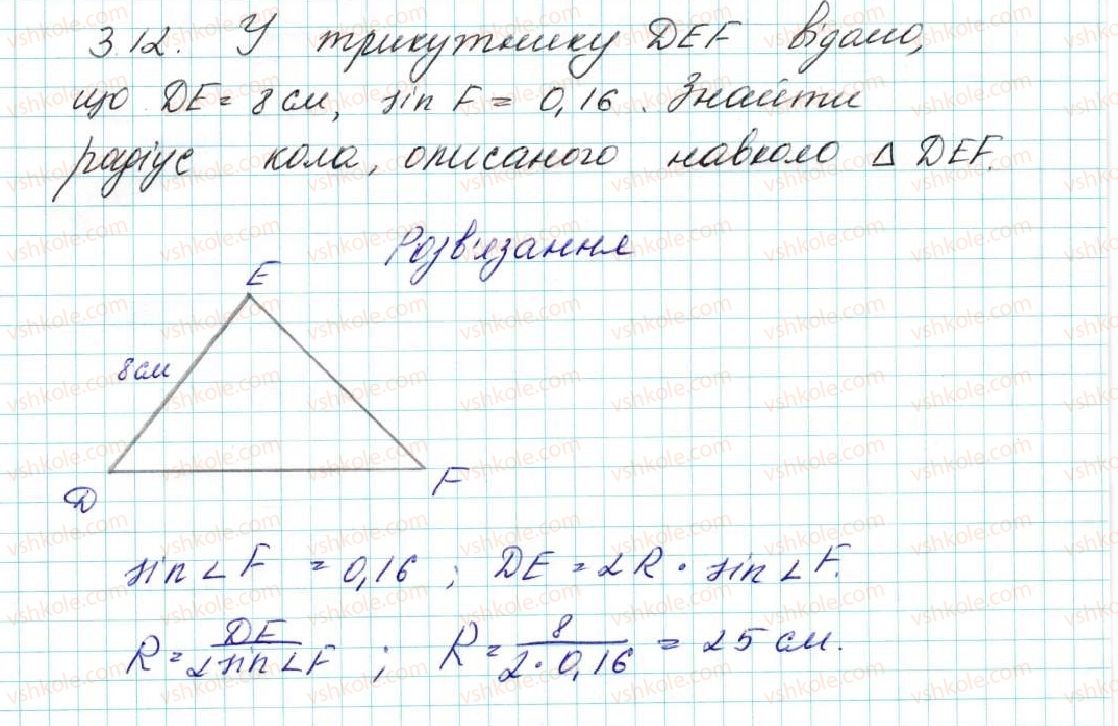 3.12. У трикутнику DEF відомо,
що DE = 8 см, sin F = 0,16. Знайти
радіус кола, описаного навколо Δ DEF.
Розв'язання
E
8 см
D
F
sin∠F = 0,16; DE = 2R · sin∠F.
R = DE / 2 sin∠F; R = 8 / 2·0,16 = 25 см.
vshkole.com